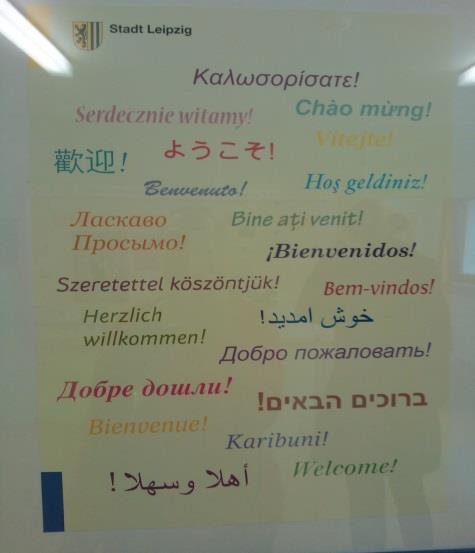 Stadt Leipzig
Καλωσορίσατε!
Serdecznie witamy!
Chào mừng!
歡迎!
ようこそ!
Vítejte!
Benvenuto!
Hoş geldiniz!
Ласкаво
Просымо!
Bine aţi venit!
¡Bienvenidos!
Szeretettel köszöntjük!
Bem-vindos!
Herzlich
willkommen!
خوش امدید!
Добро пожаловать!
Добре дошли!
ברוכים הבאים!
Bienvenue!
Karibuni!
أهلا وسهلا !
Welcome!